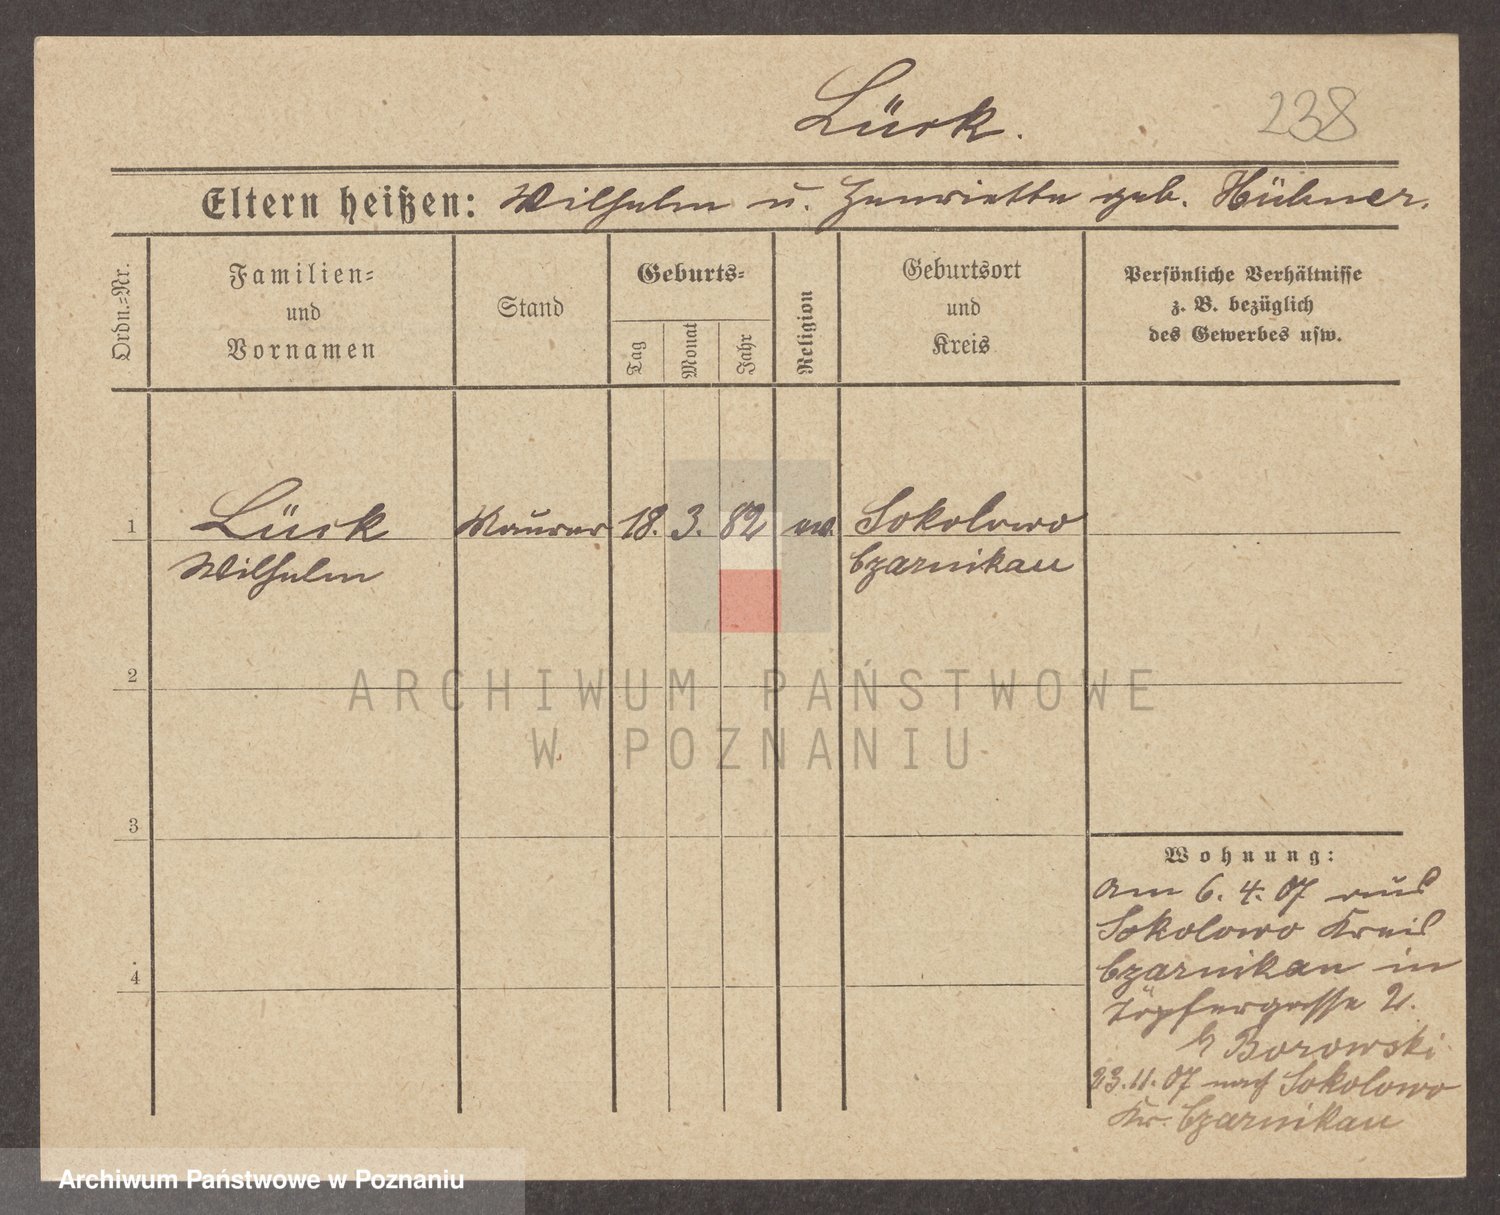 Lürk.
238
Eltern heißen: Wilhelm u. Henriette geb. Hübner.
Ordn.=Nr.
Familien=
und
Vornamen
Stand
Geburts=
Tag
Monat
Jahr
Religion
Geburtsort
und
Kreis
Persönliche Verhältnisse
z. B. bezüglich
des Gewerbes usw.
1 Lürk Maurer 18. 3. 82 ev. Sokolowo
Wilhelm Czarnikau
2
ARCHIWUM PAŃSTWOWE
W POZNANIU
3
Wohnung:
Am 6. 4. 07 aus
Sokolowo Kreis
Czarnikau in
4
Töpfergasse 2.
Borowski
23.11.07 nach Sokolowo
Kr. Czarnikau
Archiwum Państwowe w Poznaniu